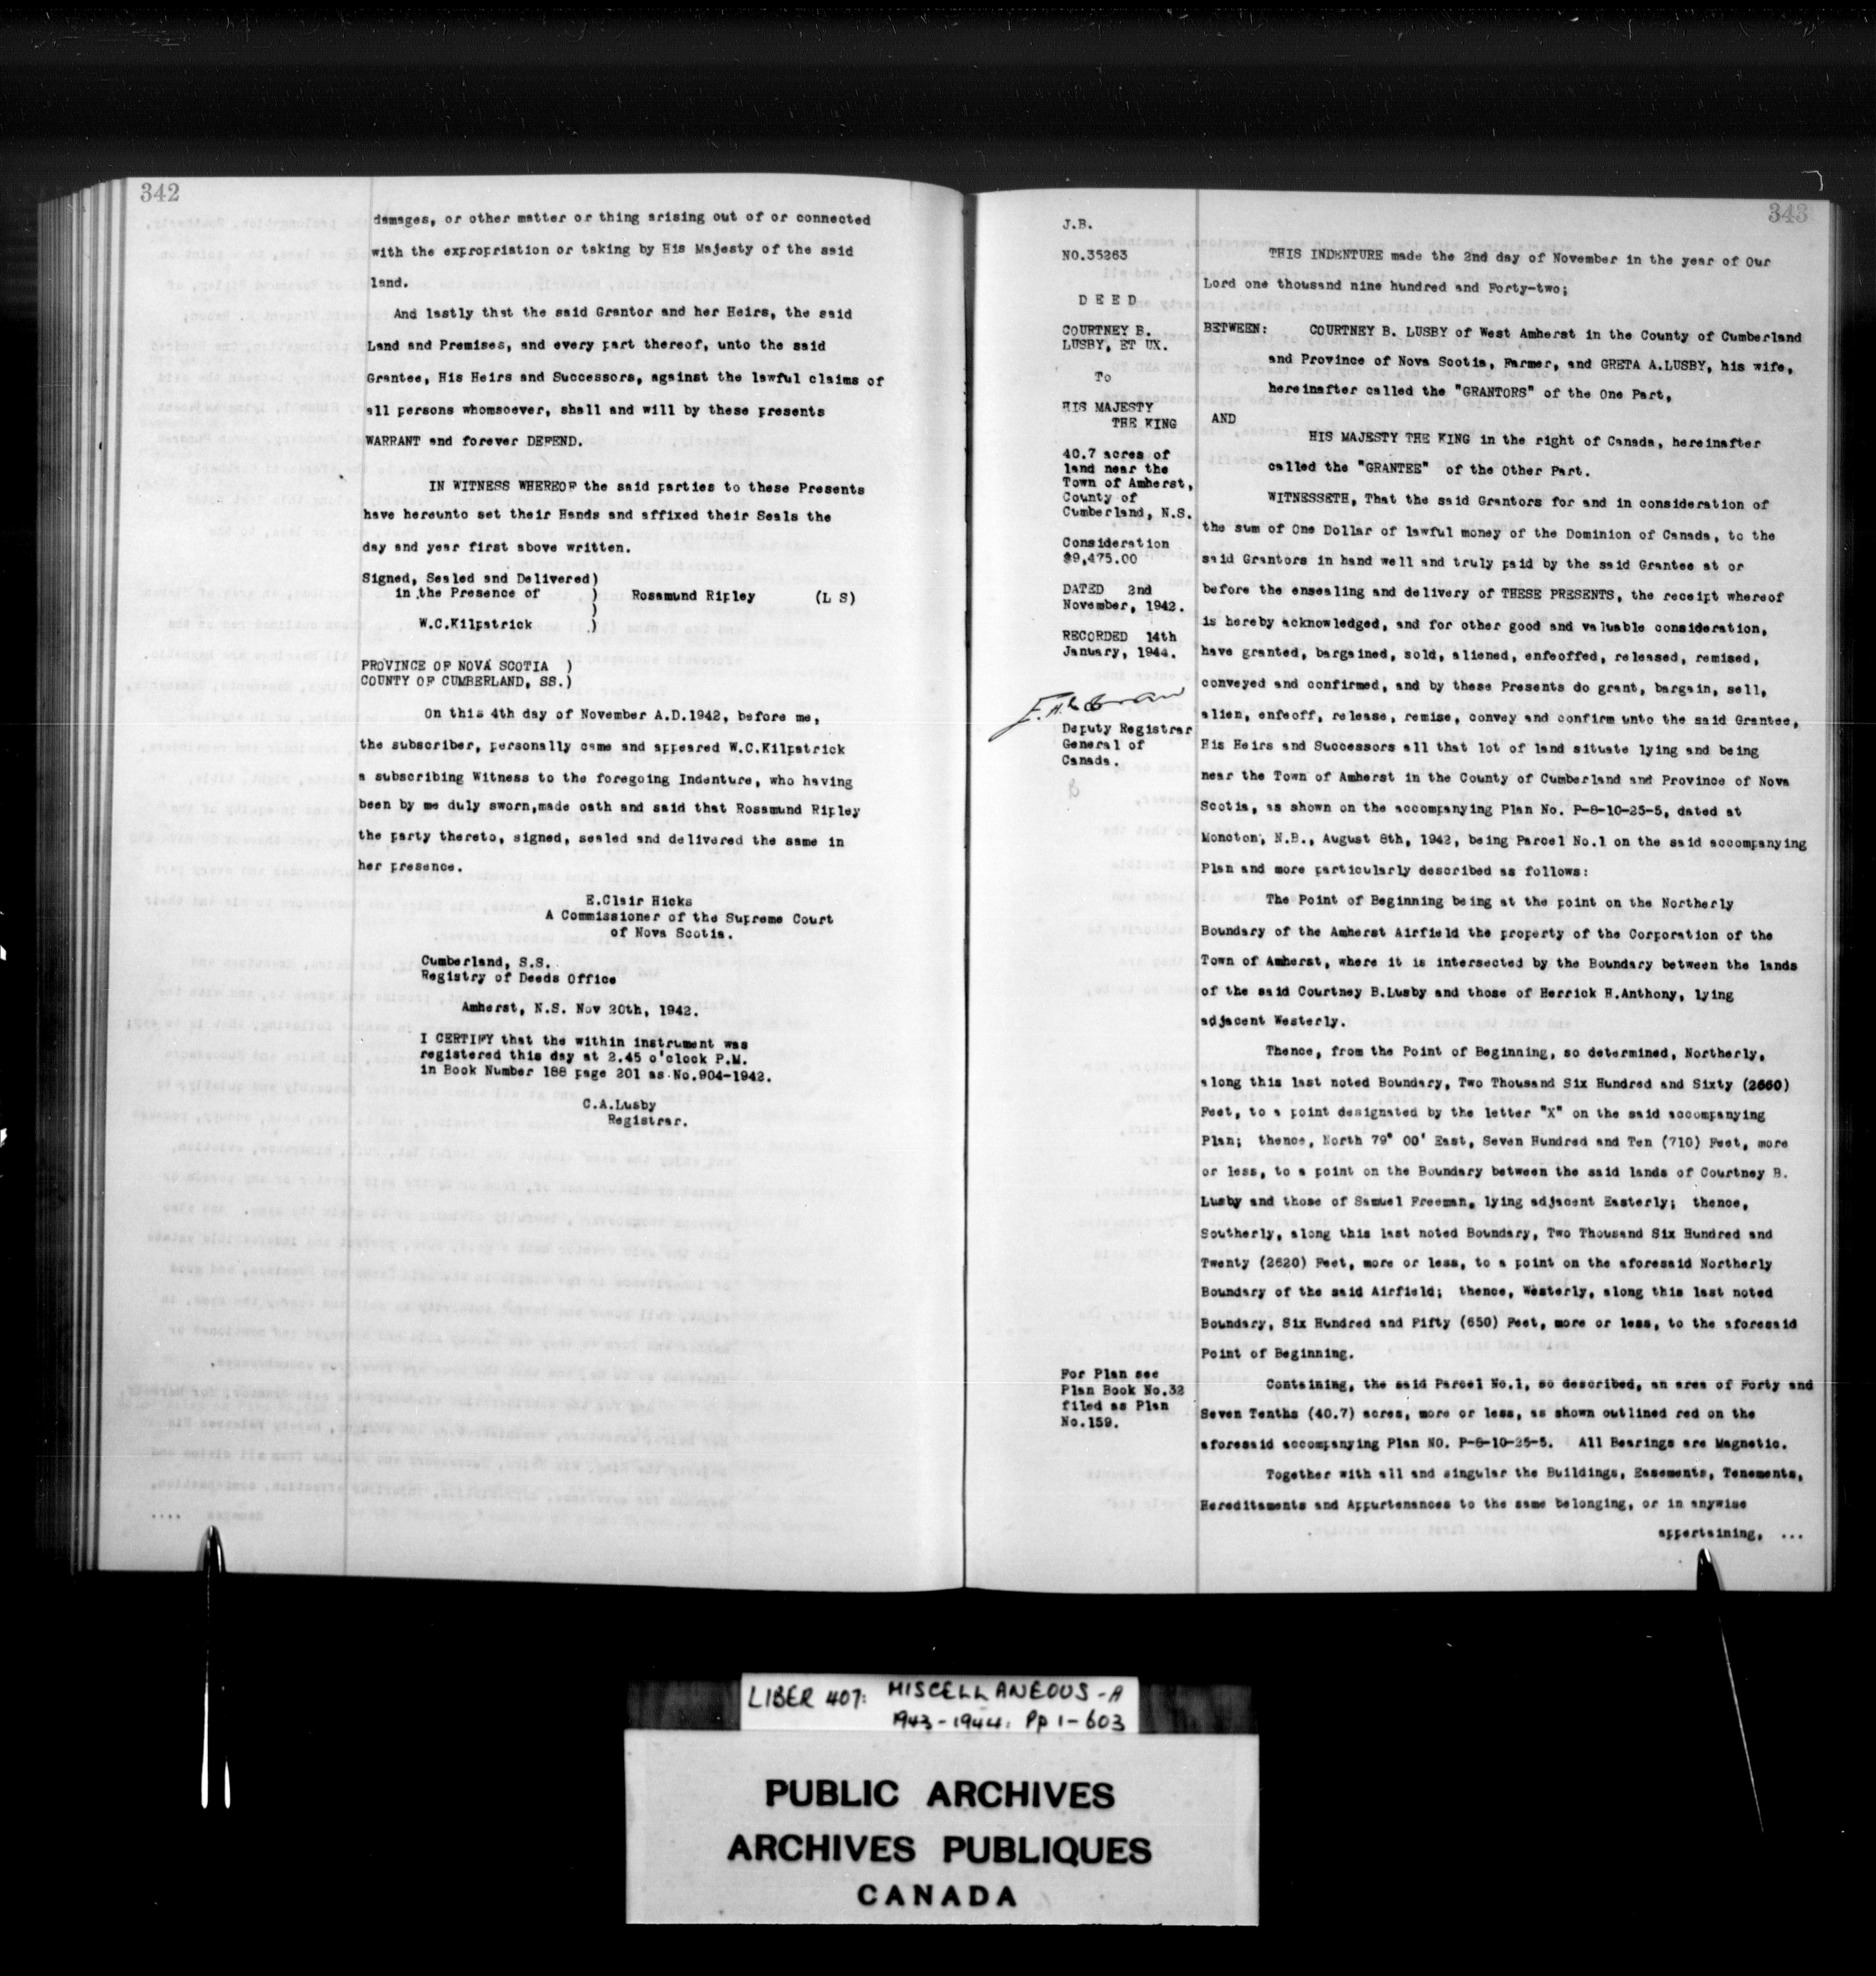 342
damages, or other matter or thing arising out of or connected
with the expropriation or taking by His Majesty of the said
land.
And lastly that the said Grantor and her Heirs, the said
Land and Premises, and every part thereof, unto the said
Grantee, His Heirs and Successors, against the lawful claims of
all persons whomsoever, shall and will by these presents
WARRANT and forever DEFEND.
IN WITNESS WHEREOF the said parties to these Presents
have hereunto set their Hands and affixed their Seals the
day and year first above written.
Signed, Sealed and Delivered)
in the Presence of )
) Rosamund Ripley (L S)
W.C.Kilpatrick )
PROVINCE OF NOVA SCOTIA )
COUNTY OF CUMBERLAND, SS.)
On this 4th day of November A.D.1942, before me,
the subscriber, personally came and appeared W.C.Kilpatrick
a subscribing Witness to the foregoing Indenture, who having
been by me duly sworn,made oath and said that Rosamund Ripley
the party thereto, signed, sealed and delivered the same in
her presence.
E.Clair Hicks
A Commissioner of the Supreme Court
of Nova Scotia.
Cumberland, S.S.
Registry of Deeds Office
Amherst, N.S. Nov 20th, 1942.
I CERTIFY that the within instrument was
registered this day at 2.45 o'clock P.M.
in Book Number 188 page 201 as No.904-1942.
C.A.Lusby
Registrar.
343
J.B.
NO.35263
D E E D
COURTNEY B.
LUSBY, ET UX.
To
HIS MAJESTY
THE KING
40.7 acres of
land near the
Town of Amherst,
County of
Cumberland, N.S.
Consideration
$9,475.00
DATED 2nd
November, 1942.
RECORDED 14th
January, 1944.
Deputy Registrar
General of
Canada.
For Plan see
Plan Book No.32
filed as Plan
No.159.
THIS INDENTURE made the 2nd day of November in the year of Our
Lord one thousand nine hundred and Forty-two;
BETWEEN: COURTNEY B. LUSBY of West Amherst in the County of Cumberland
and Province of Nova Scotia, Farmer, and GRETA A.LUSBY, his wife,
hereinafter called the "GRANTORS" of the One Part,
AND
HIS MAJESTY THE KING in the right of Canada, hereinafter
called the "GRANTEE" of the Other Part.
WITNESSETH, That the said Grantors for and in consideration of
the sum of One Dollar of lawful money of the Dominion of Canada, to the
said Grantors in hand well and truly paid by the said Grantee at or
before the ensealing and delivery of THESE PRESENTS, the receipt whereof
is hereby acknowledged, and for other good and valuable consideration,
have granted, bargained, sold, aliened, enfeoffed, released, remised,
conveyed and confirmed, and by these Presents do grant, bargain, sell,
alien, enfeoff, release, remise, convey and confirm unto the said Grantee,
His Heirs and Successors all that lot of land situate lying and being
near the Town of Amherst in the County of Cumberland and Province of Nova
Scotia, as shown on the accompanying Plan No. P-8-10-25-5, dated at
Moncton, N.B., August 8th, 1942, being Parcel No.1 on the said accompanying
Plan and more particularly described as follows:
The Point of Beginning being at the point on the Northerly
Boundary of the Amherst Airfield the property of the Corporation of the
Town of Amherst, where it is intersected by the Boundary between the lands
of the said Courtney B.Lusby and those of Herrick H.Anthony, lying
adjacent Westerly.
Thence, from the Point of Beginning, so determined, Northerly,
along this last noted Boundary, Two Thousand Six Hundred and Sixty (2660)
Feet, to a point designated by the letter "X" on the said accompanying
Plan; thence, North 79° 00' East, Seven Hundred and Ten (710) Feet, more
or less, to a point on the Boundary between the said lands of Courtney B.
Lusby and those of Samuel Freeman, lying adjacent Easterly; thence,
Southerly, along this last noted Boundary, Two Thousand Six Hundred and
Twenty (2620) Feet, more or less, to a point on the aforesaid Northerly
Boundary of the said Airfield; thence, Westerly, along this last noted
Boundary, Six Hundred and Fifty (650) Feet, more or less, to the aforesaid
Point of Beginning.
Containing, the said Parcel No.1, so described, an area of Forty and
Seven Tenths (40.7) acres, more or less, as shown outlined red on the
aforesaid accompanying Plan NO. P-8-10-25-5. All Bearings are Magnetic.
Together with all and singular the Buildings, Easements, Tenements,
Hereditaments and Appurtenances to the same belonging, or in anywise
appertaining, ...
LIBER 407: MISCELLANEOUS-A
1943-1944: Pp 1-603
PUBLIC ARCHIVES
ARCHIVES PUBLIQUES
CANADA